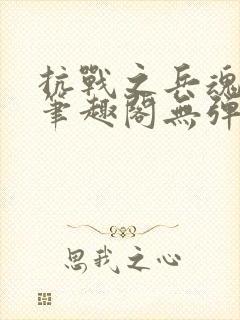 抗戰之兵魂
筆趣閣無彈
思我之心